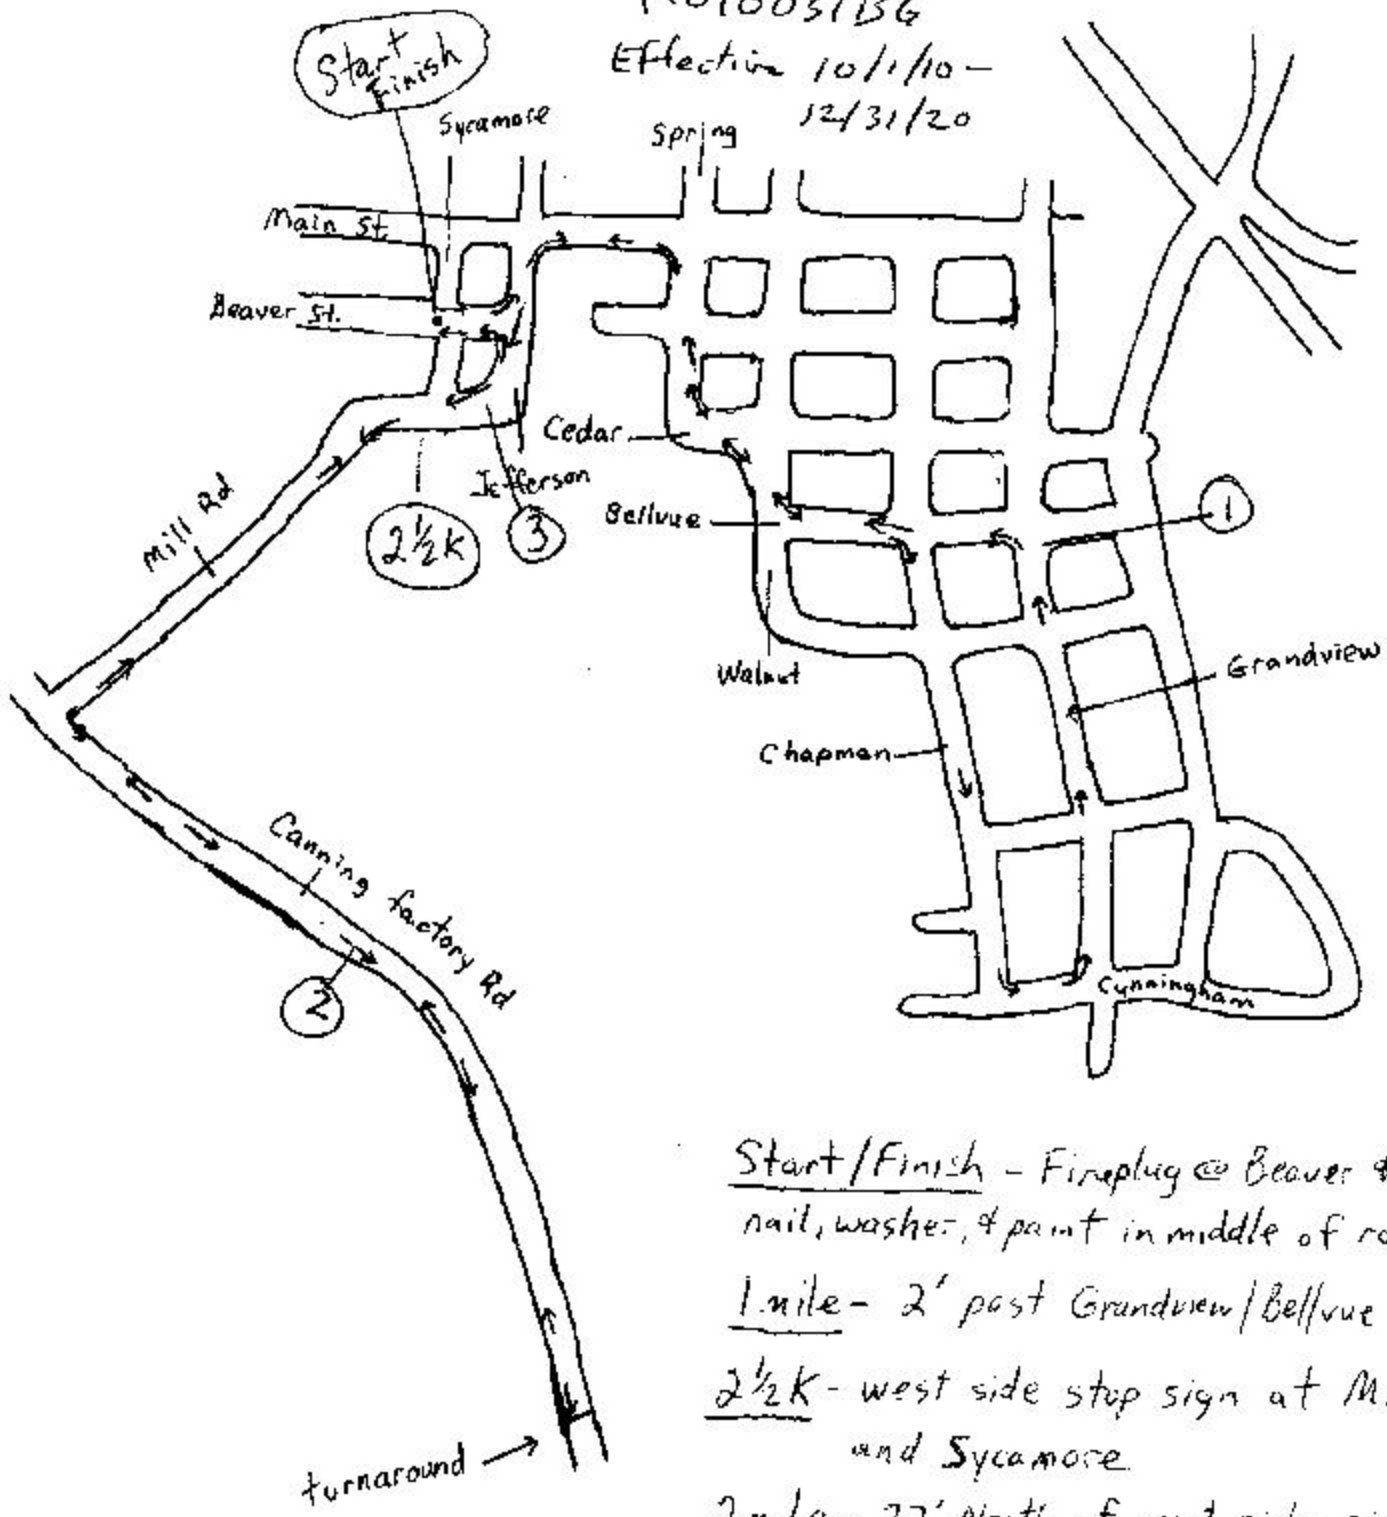 Effective 10/1/10 -
12/31/20
Start
Finish
Sycamore
Spring
Main St.
Beaver St.
Cedar
Jefferson
Mill Rd
2½K
3
Bellvue
1
Walnut
Grandview
Chapman
Canning factory Rd
2
Cunningham
Start/Finish - Fireplug @ Beaver &
nail, washer, & paint in middle of
1 mile - 2' past Grandview/Bellvue
2½K - west side stop sign at
and Sycamore
turnaround